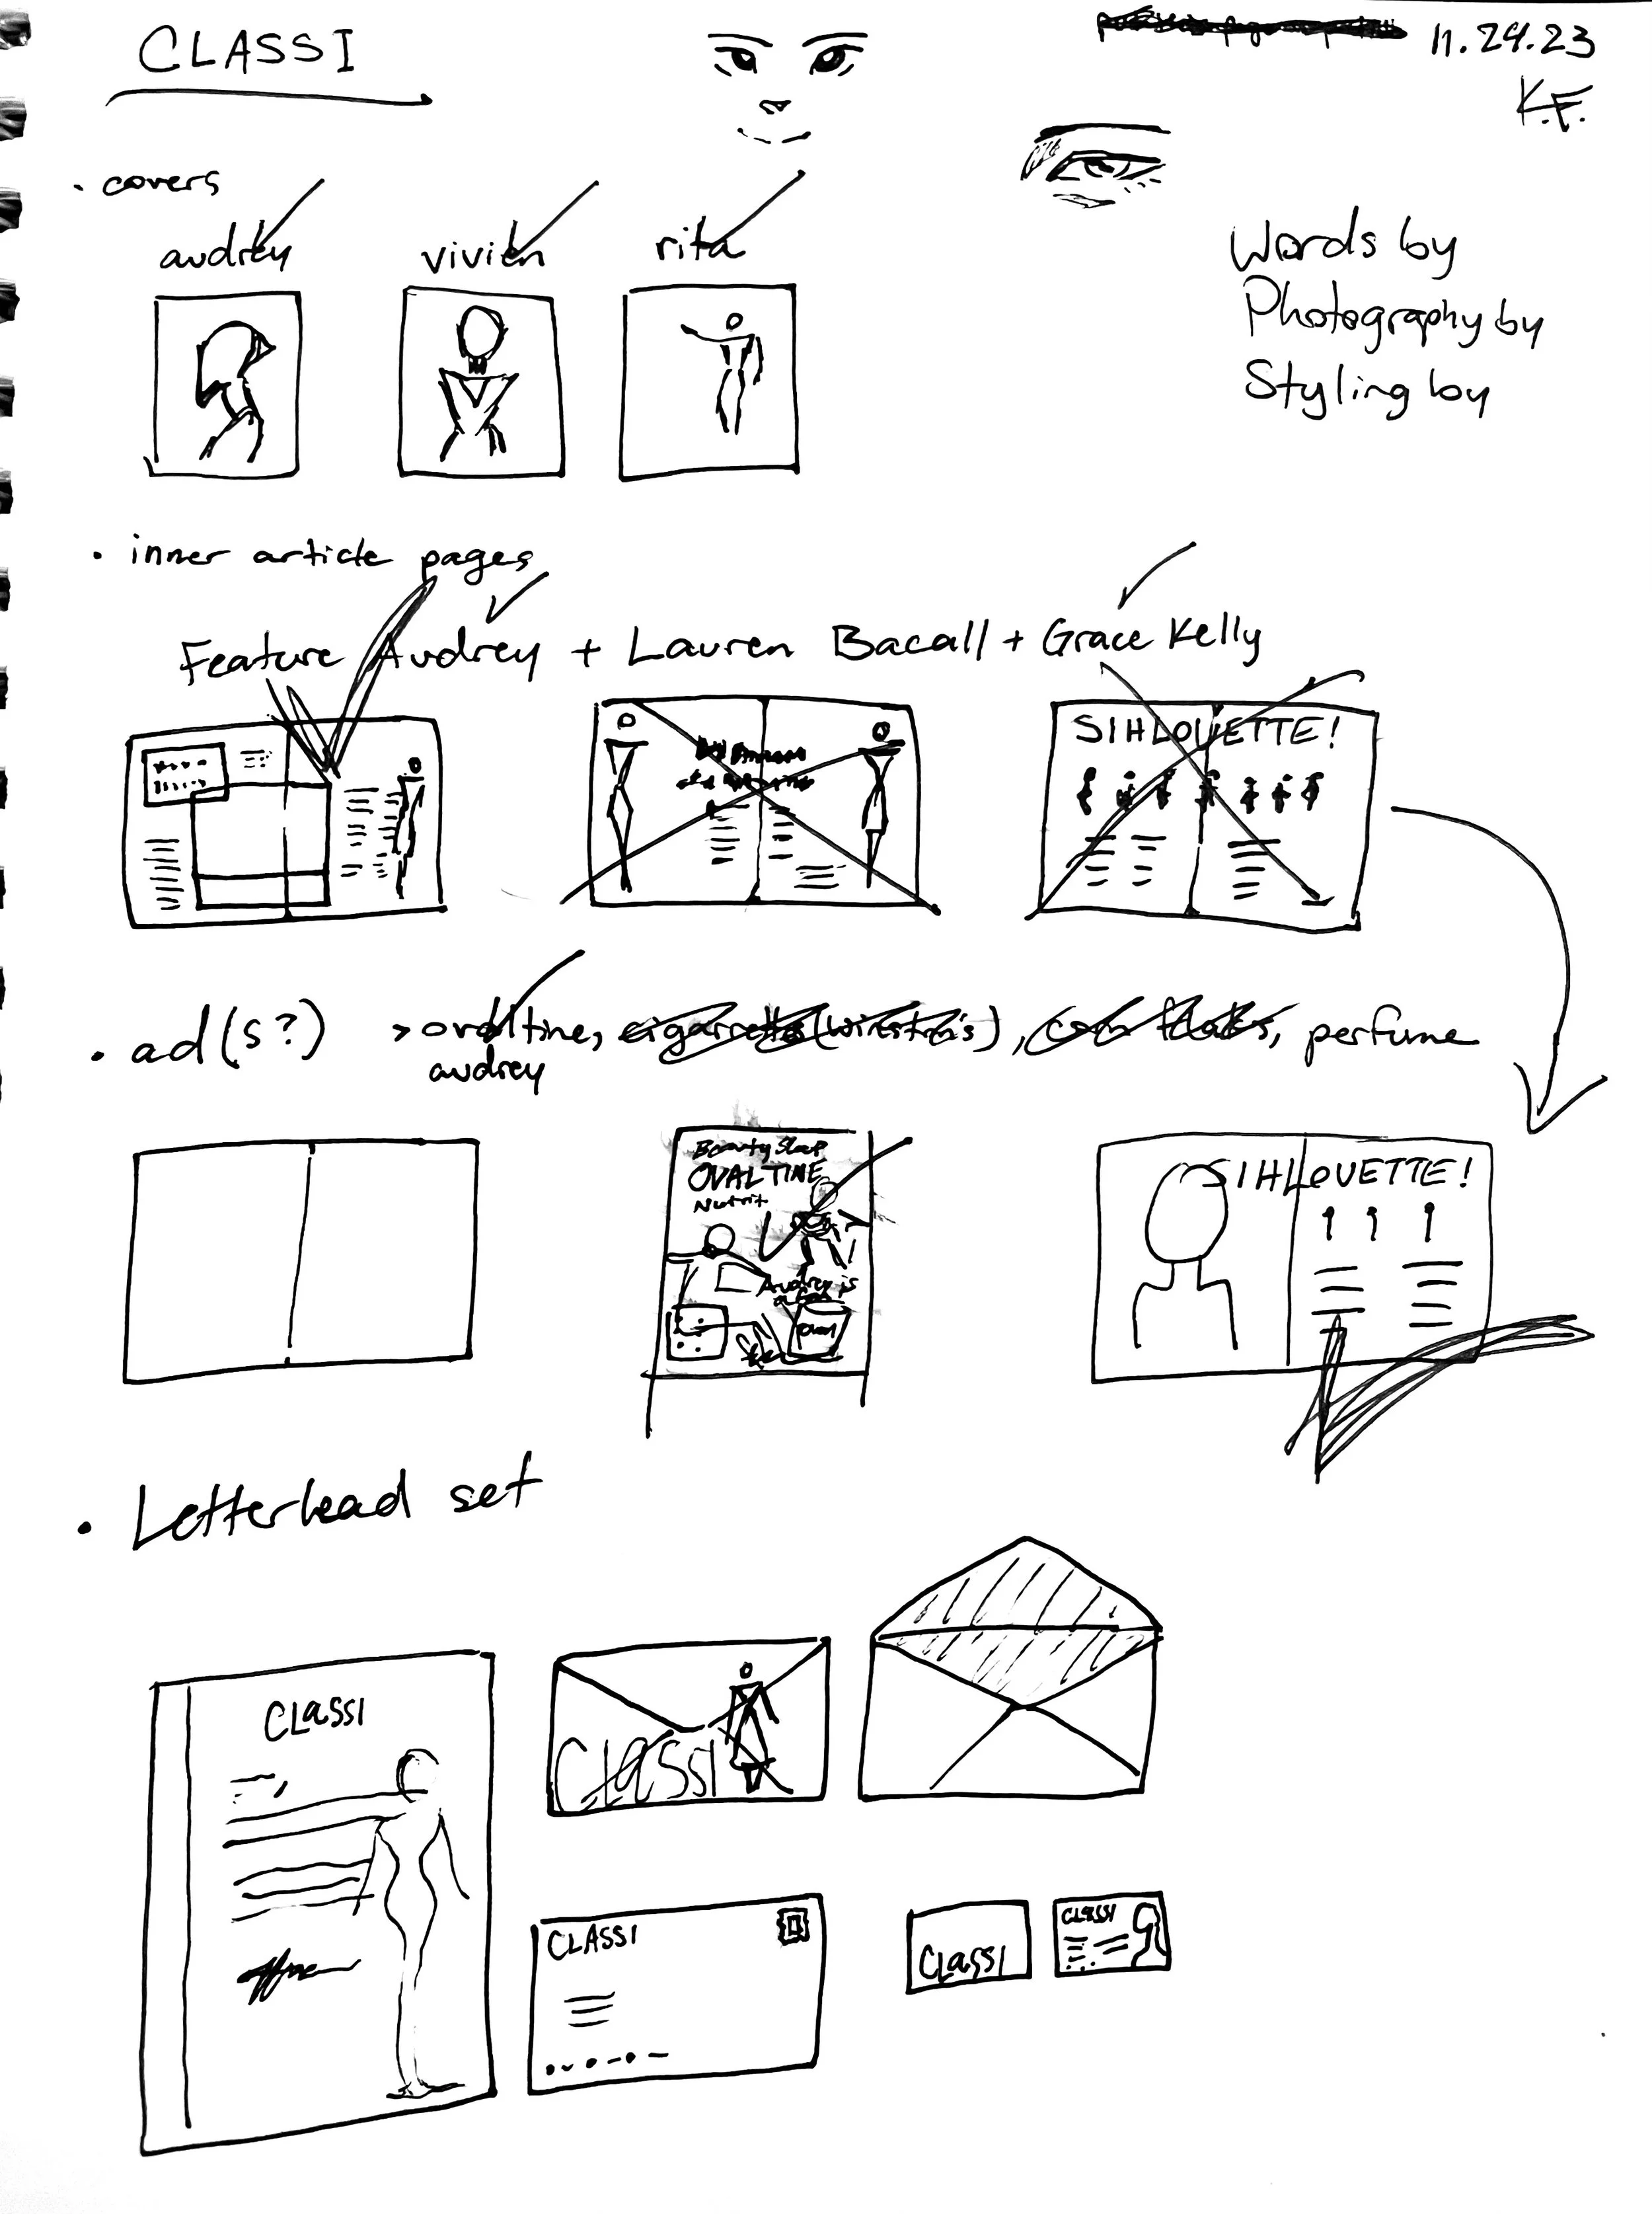 CLASSI
11.29.23
K.F.
• covers
audrey vivien rita
Words by
Photography by
Styling by
• inner article pages
Feature Audrey + Lauren Bacall + Grace Kelly
SIHLOUETTE!
• ad(s?) > ovaltine, cigarrettes (winston's), corn flakes, perfume
audrey
Beauty Sleep
OVALTINE
Nutrit.
Audrey is
SIHLOUETTE!
• Letterhead set
CLaSSI
CLaSSI
CLASSI
CLaSSI
CLaSSI